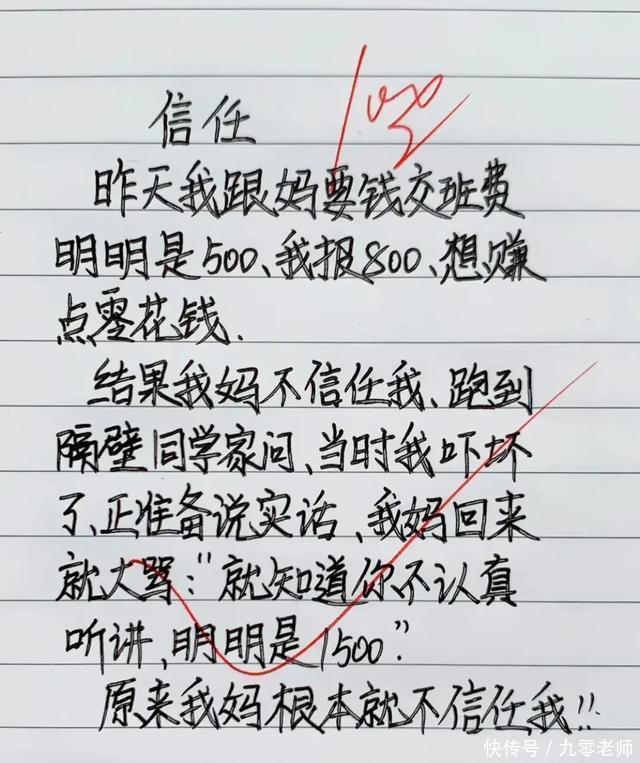 100
信任
昨天我跟妈要钱交班费
明明是500、我报800、想赚
点零花钱.
结果我妈不信任我、跑到
隔壁同学家问、当时我吓坏
了、正准备说实话、我妈回来
就大骂:"就知道你不认真
听讲,明明是1500."
原来我妈根本就不信任我!!
快传号/九零老师